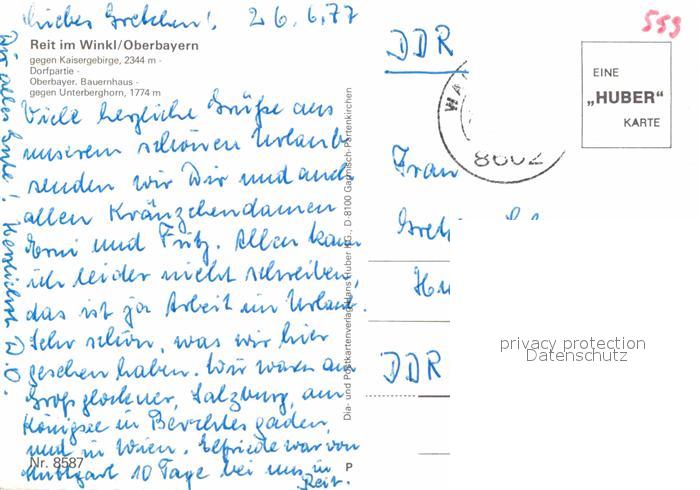 Liebes Gretchen! 26.6.77
Reit im Winkl/Oberbayern
gegen Kaisergebirge, 2344 m -
Dorfpartie -
Oberbayer. Bauernhaus -
gegen Unterberghorn, 1774 m
Viele herzliche Grüße aus
unserem schönen Urlaub
senden wir Dir und auch
allen Kränzchendamen
Erni und Fritz. Allen kann
ich leider nicht schreiben,
das ist ja Arbeit im Urlaub.
Sehr schön, was wir hier
gesehen haben. Wir waren am
Großglockner, Salzburg, am
Königsee in Berchtesgaden,
und in Wien. Elfriede war von
Stuttgart 10 Tage bei uns in
Reit.
Nr. 8587
P
Dir alles Gute! Herzlichst D.O.
Dia- und Postkartenverlag Hans Huber KG., D-8100 Garmisch-Partenkirchen
DDR
8602
599
EINE
„HUBER"
KARTE
Frau
DDR
privacy protection
Datenschutz